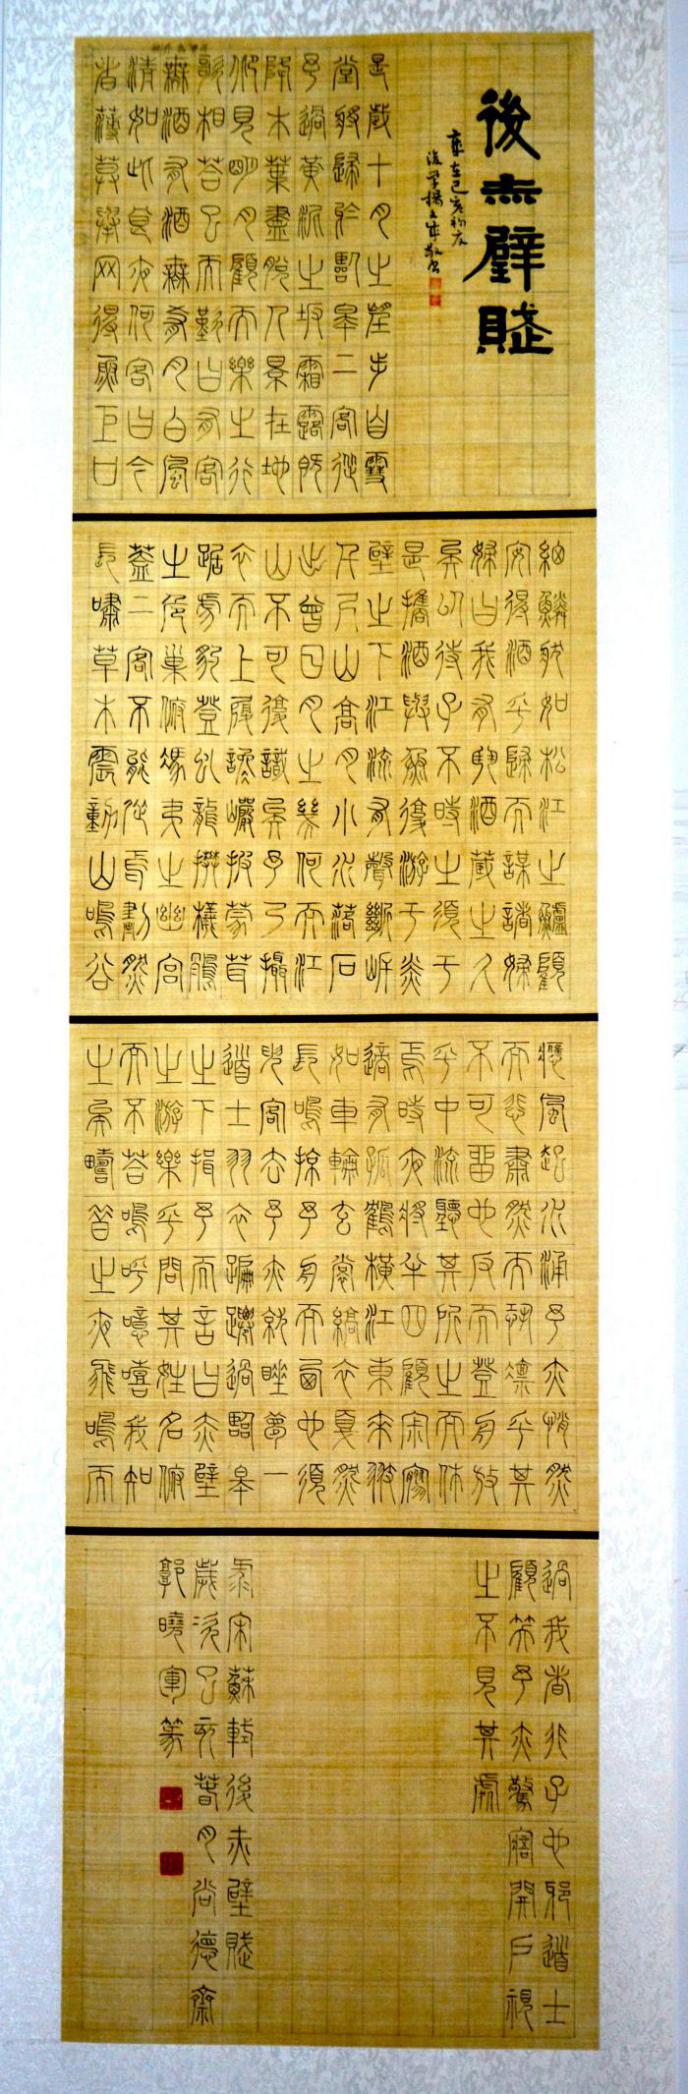 後赤壁賦
歲在己亥初夏
是歲十月之望步自雪
堂將歸於臨皋二客從
予過黃泥之坂霜露既
降木葉盡脫人景在地
仰見明月顧而樂之行
歌相答已而歎曰有客
無酒有酒無肴月白風
清如此良夜何客曰今
者薄莫舉网得魚巨口
細鱗狀如松江之鱸顧
安得酒乎歸而謀諸婦
婦曰我有斗酒藏之久
矣以待子不時之須于
是攜酒與魚復游于赤
壁之下江流有聲斷岸
千尺山高月小水落石
出曾日月之幾何而江
山不可復識矣予乃攝
衣而上履巉巖披蒙茸
踞虎豹登虬龍攀棲鶻
之危巢俯馮夷之幽宮
蓋二客不能從焉劃然
長嘯草木震動山鳴谷
應風起水涌予亦悄然
而悲肅然而恐凜乎其
不可留也反而登舟放
乎中流聽其所止而休
焉時夜將半四顧寂寥
適有孤鶴橫江東來翅
如車輪玄裳縞衣戛然
長鳴掠予舟而西也須
臾客去予亦就睡夢一
道士羽衣蹁躚過臨皋
之下揖予而言曰赤壁
之游樂乎問其姓名俯
而不答嗚呼噫嘻我知
之矣疇昔之夜飛鳴而
過我者非子也邪道士
顧笑予亦驚寤開戶視
之不見其處
录宋蘇軾後赤壁賦
歲次己亥春月尚德齋
郭曉軍篆